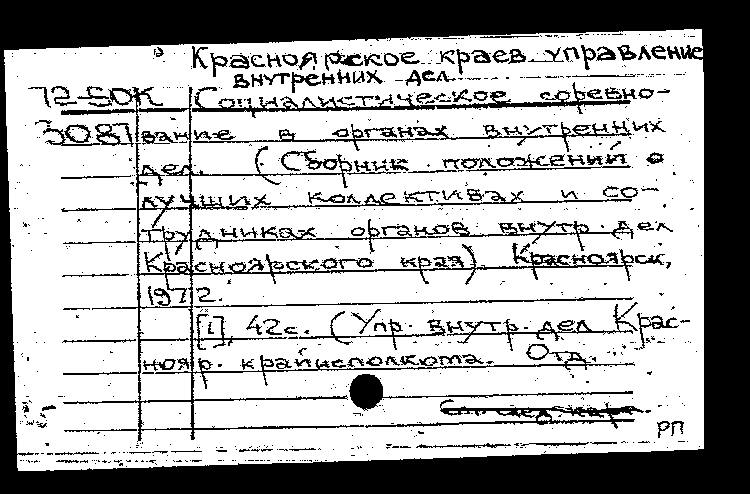 Красноярское краев. управление
внутренних дел.
72-50К Социалистическое соревно-
5087 вание в органах внутренних
дел. (Сборник положений о
лучших коллективах и со-
трудниках органов внутр. дел
Красноярского края). Красноярск,
1972.
[1], 42с. (Упр. внутр. дел Крас-
нояр. крайисполкома. Отд.
РП